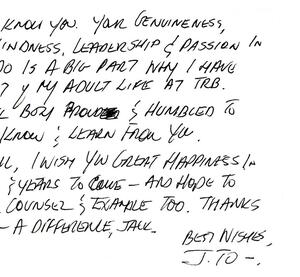 KNOW YOU. YOUR GENUINENESS,
KINDNESS, LEADERSHIP & PASSION IN
DO IS A BIG PART WHY I HAVE
MY ADULT LIFE AT TRB.
BOTH & HUMBLED TO
KNOW & LEARN FROM YOU.
I WISH YOU GREAT HAPPINESS IN
& YEARS TO COME - AND HOPE TO
COUNSEL & EXAMPLE TOO. THANKS
- A DIFFERENCE, JACK.
BEST WISHES,